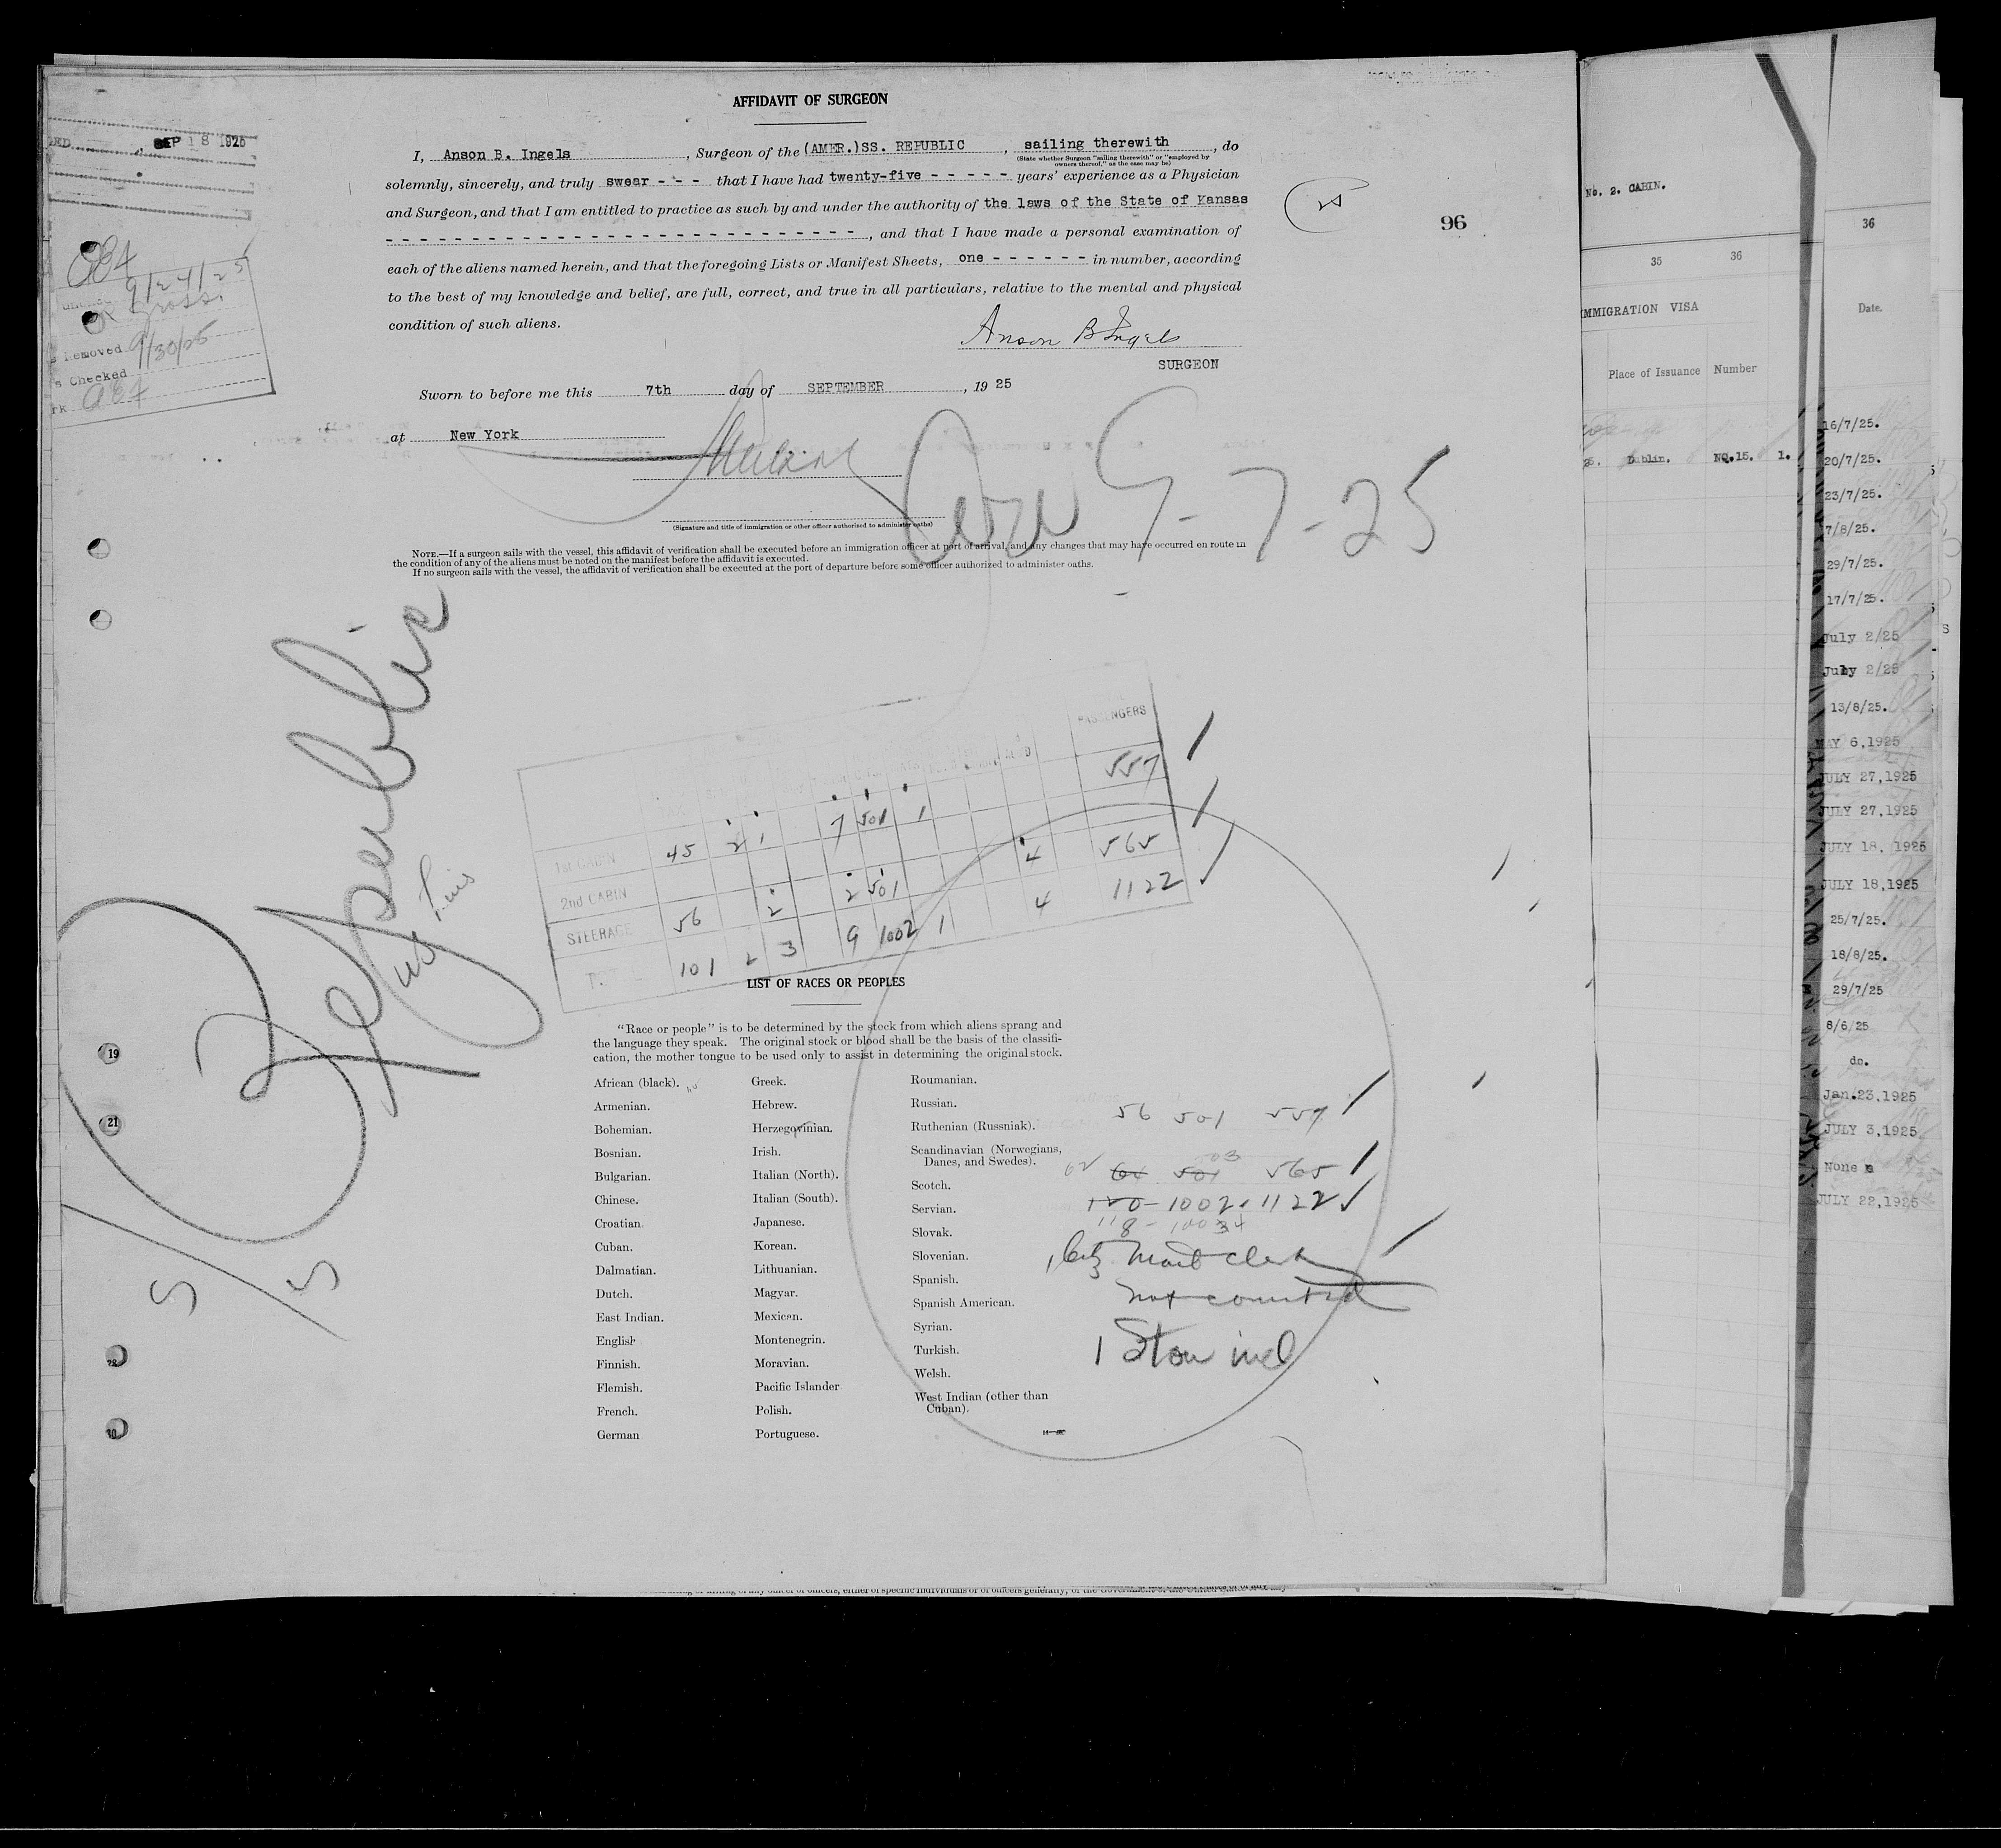 AFFIDAVIT OF SURGEON
SEP 18 1925
I, Anson B. Ingels, Surgeon of the (AMER.)SS. REPUBLIC, sailing therewith, do
(State whether Surgeon "sailing therewith" or "employed by
owners thereof," as the case may be)
solemnly, sincerely, and truly swear - - - that I have had twenty-five - - - - - years' experience as a Physician
and Surgeon, and that I am entitled to practice as such by and under the authority of the laws of the State of Kansas
- - - - - - - - - - - - - - - - - - - - - - - - - - - - -, and that I have made a personal examination of
each of the aliens named herein, and that the foregoing Lists or Manifest Sheets, one - - - - - - in number, according
to the best of my knowledge and belief, are full, correct, and true in all particulars, relative to the mental and physical
condition of such aliens.
Anson B Ingels
SURGEON
Sworn to before me this 7th day of SEPTEMBER, 19 25
at New York
(Signature and title of immigration or other officer authorized to administer oaths)
NOTE.—If a surgeon sails with the vessel, this affidavit of verification shall be executed before an immigration officer at port of arrival, and any changes that may have occurred en route in
the condition of any of the aliens must be noted on the manifest before the affidavit is executed.
If no surgeon sails with the vessel, the affidavit of verification shall be executed at the port of departure before some officer authorized to administer oaths.
96
9/24/25
Removed 9/30/25
s Checked
9-7-25
Republic
PASSENGERS
1st CABIN 45 2 1 7 501 1 557
2nd CABIN 56 2 2 501 4 565
STEERAGE 101 2 3 9 1002 1 4 1122
LIST OF RACES OR PEOPLES
"Race or people" is to be determined by the stock from which aliens sprang and
the language they speak. The original stock or blood shall be the basis of the classifi-
cation, the mother tongue to be used only to assist in determining the original stock.
African (black).
Armenian.
Bohemian.
Bosnian.
Bulgarian.
Chinese.
Croatian.
Cuban.
Dalmatian.
Dutch.
East Indian.
English
Finnish.
Flemish.
French.
German
Greek.
Hebrew.
Herzegovinian.
Irish.
Italian (North).
Italian (South).
Japanese.
Korean.
Lithuanian.
Magyar.
Mexican.
Montenegrin.
Moravian.
Pacific Islander
Polish.
Portuguese.
Roumanian.
Russian.
Ruthenian (Russniak).
Scandinavian (Norwegians,
Danes, and Swedes).
Scotch.
Servian.
Slovak.
Slovenian.
Spanish.
Spanish American.
Syrian.
Turkish.
Welsh.
West Indian (other than
Cuban).
56 501 557
62 501 565
120 - 1002 1122
118 -
Mail Clerk
not counted
1 Stow incl
19
21
No. 2. CABIN.
35 36
IMMIGRATION VISA
Place of Issuance Number
Dublin. NQ.15. 1.
36
Date.
16/7/25.
20/7/25.
23/7/25.
7/8/25.
29/7/25.
17/7/25.
July 2/25
July 2/25
13/8/25.
MAY 6,1925
JULY 27,1925
JULY 27,1925
JULY 18, 1925
JULY 18,1925
25/7/25.
18/8/25.
29/7/25
8/6/25
do.
Jan.23,1925
JULY 3,1925
None
JULY 22,1925